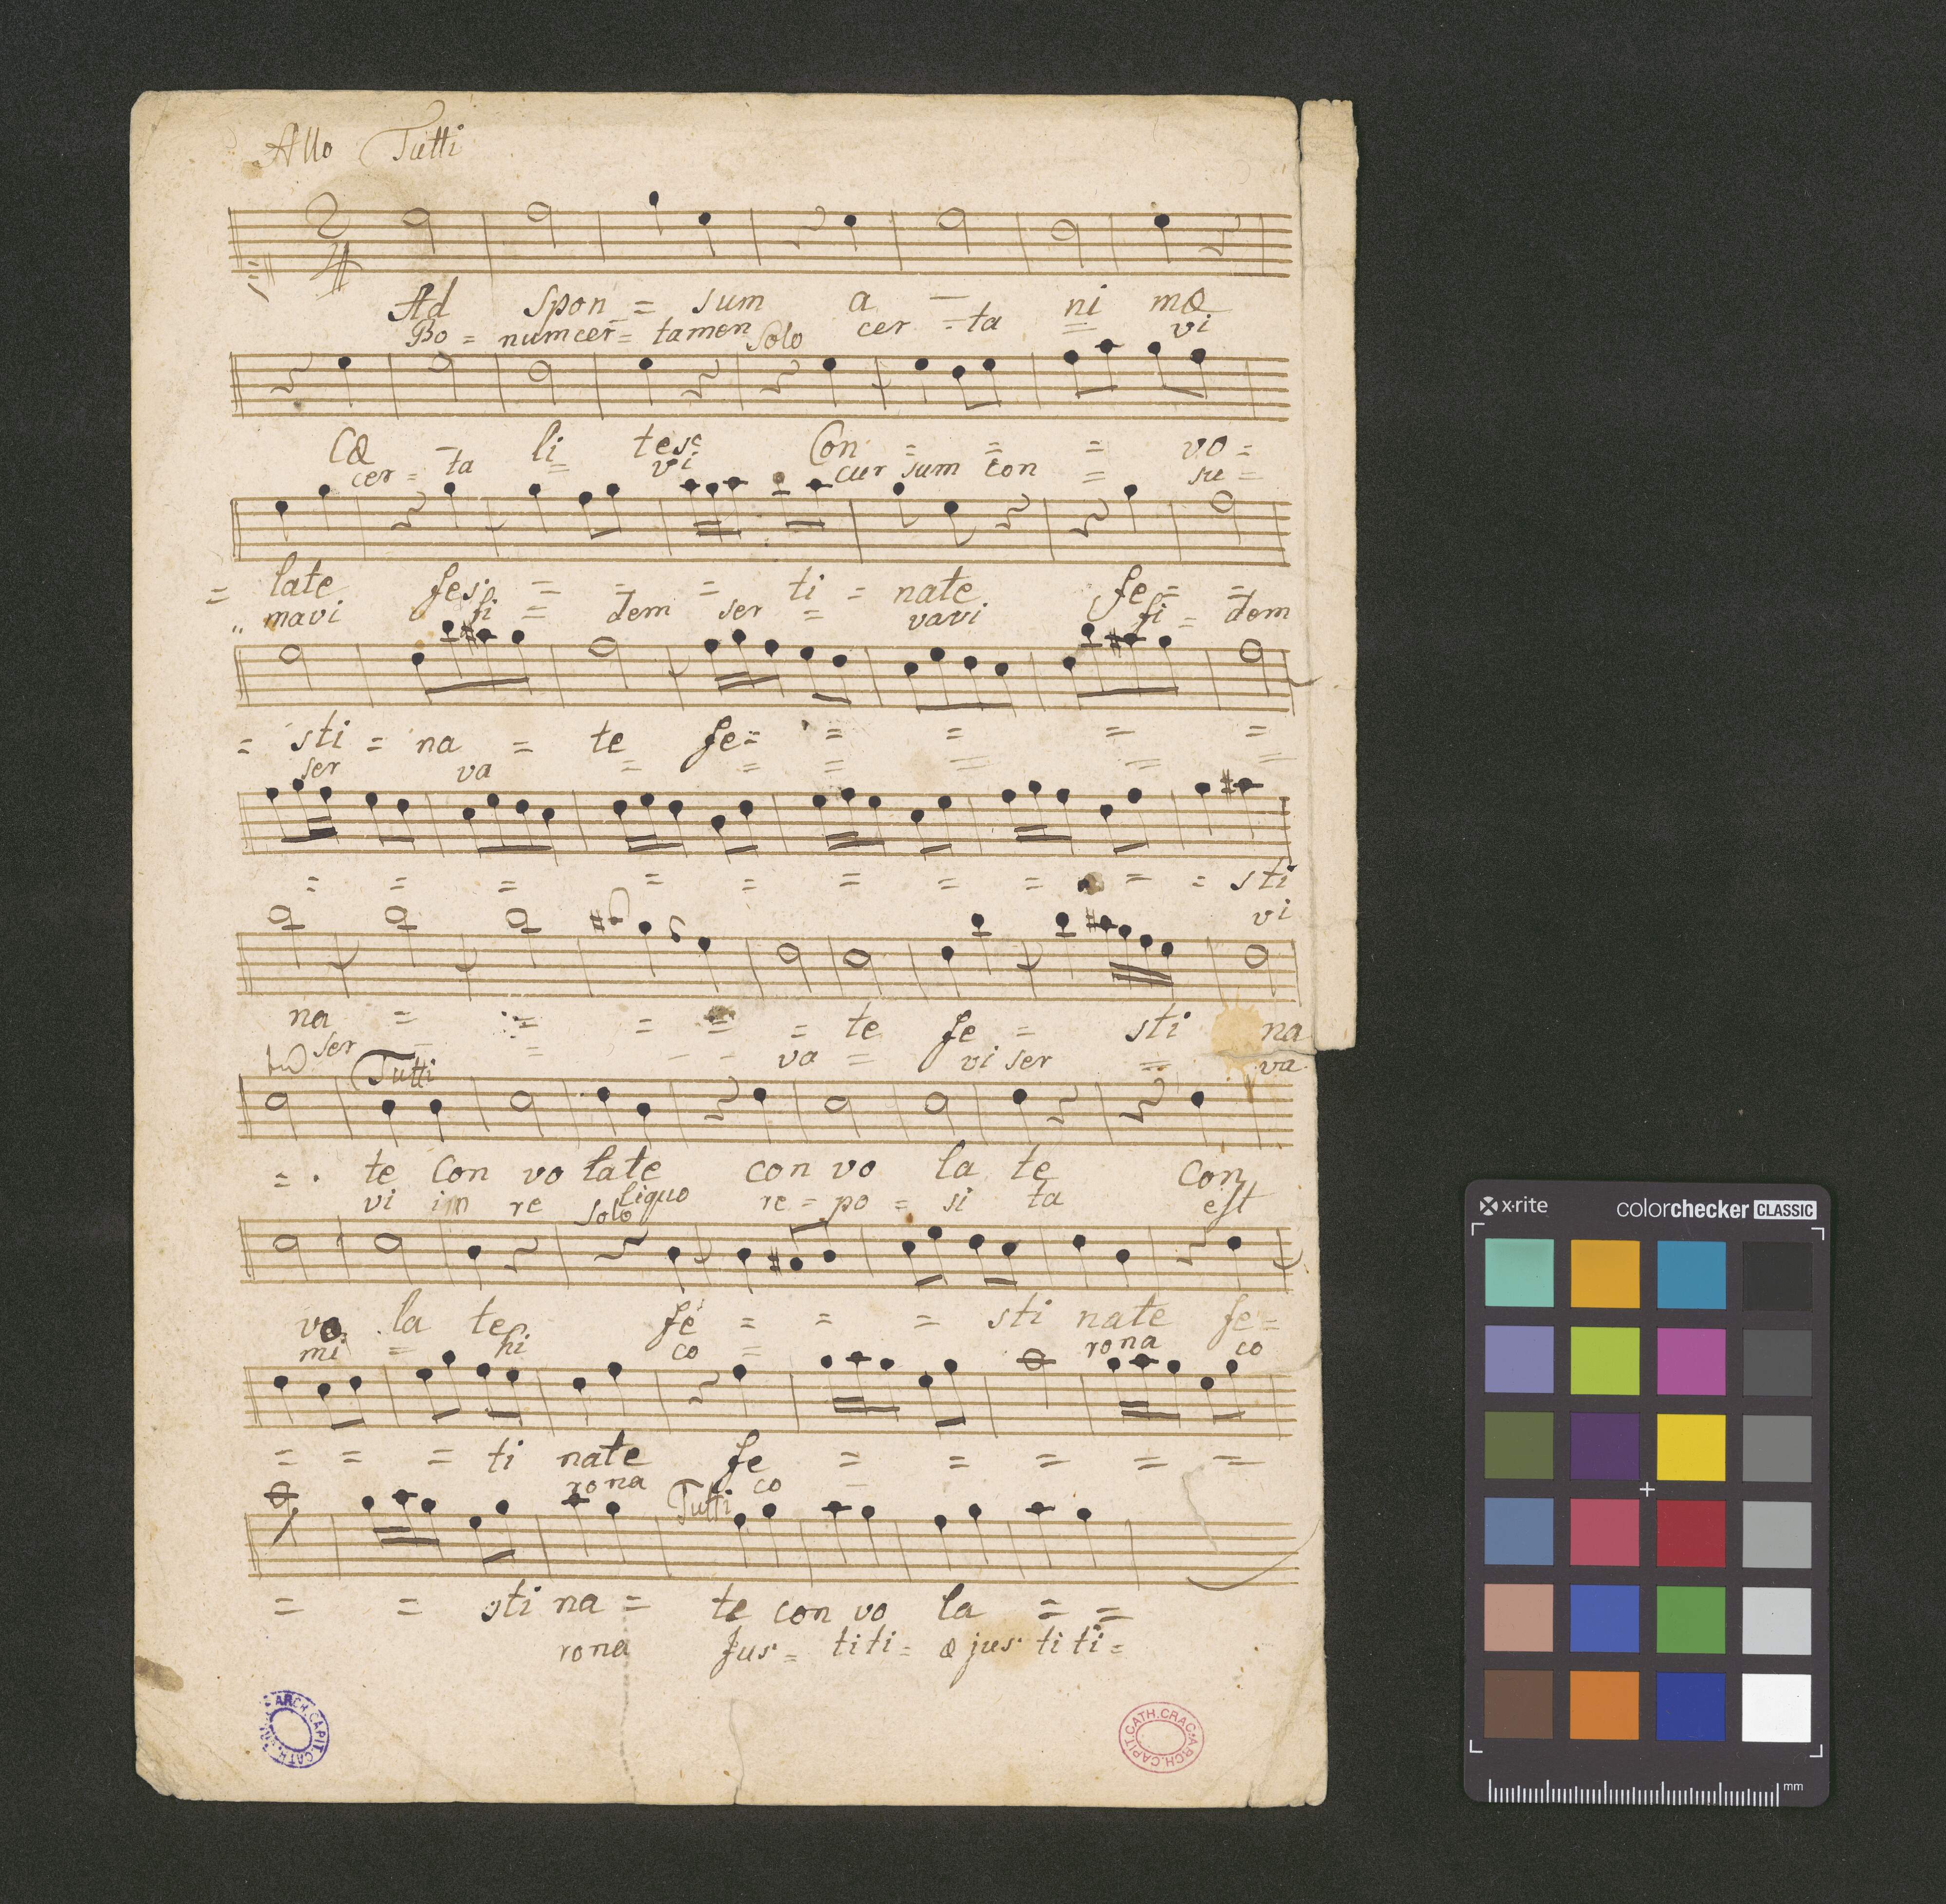 Allo Tutti
2/4
Ad spon = sum a — ni mæ
Bo = num cer = tamen Solo cer = ta = vi
Cæ - li tes Con = = = vo =
cer = ta = vi cur sum con = su =
= late fes = = = ti = nate fe = =
mavi fi = dem ser = vavi fi = dem
= sti = na = te fe = = = = =
ser va = = = = = =
= = = = = = = = = = sti
vi
na = = = = = te fe = sti na
ser = = - - va = vi ser = va
Tutti
= . te Con vo late con vo la te Con
vi im re solo liquo re = po = si ta est
vo la te fe = = = sti nate fe =
mi = hi co = rona co
= = = ti nate fe = = = = =
rona co
Tutti
= = sti na = te con vo la = =
rona Jus = titi = æ jus titi =
ARCH. CAPIT. CATH.
ARCH. CAPIT. CATH. CRAC.
x·rite colorchecker CLASSIC
mm